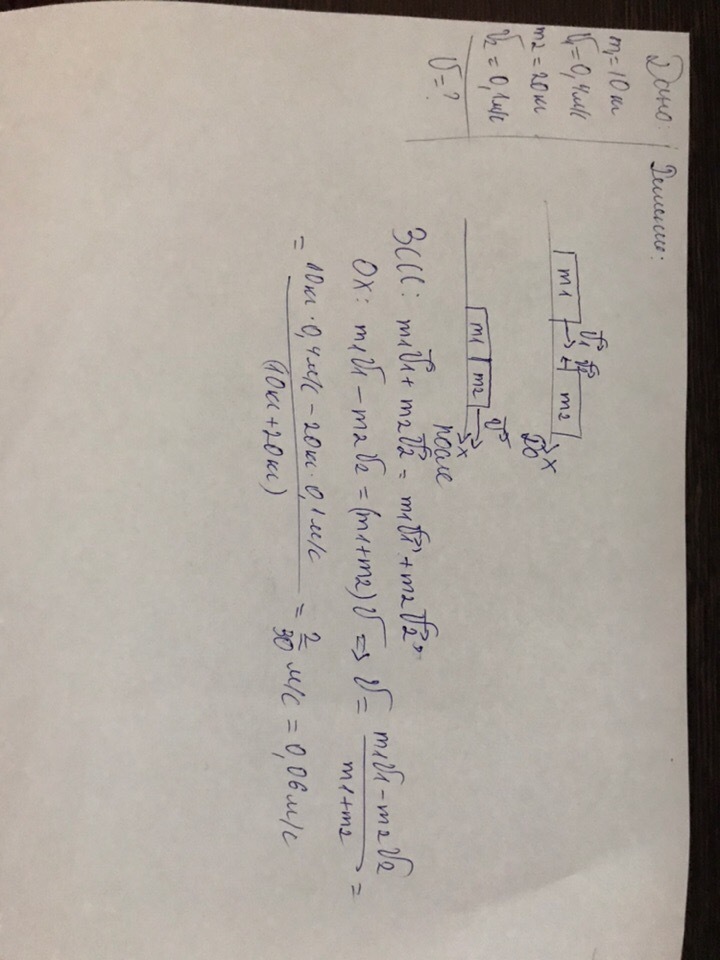 Дано:
m1 = 10 кг
V1 = 0,4 м/с
m2 = 20 кг
V2 = 0,1 м/с
V = ?
Решение:
m1 V⃗1 V⃗2 m2 x
До
m1 m2 V⃗ x
после
ЗСИ: m1V⃗1 + m2V⃗2 = m1V⃗1' + m2V⃗2'
OX: m1V1 − m2V2 = (m1+m2)V ⇒ V = (m1V1 − m2V2)/(m1+m2) =
= (10кг · 0,4м/с − 20кг · 0,1м/с)/(10кг+20кг) = 2/30 м/с = 0,06м/с